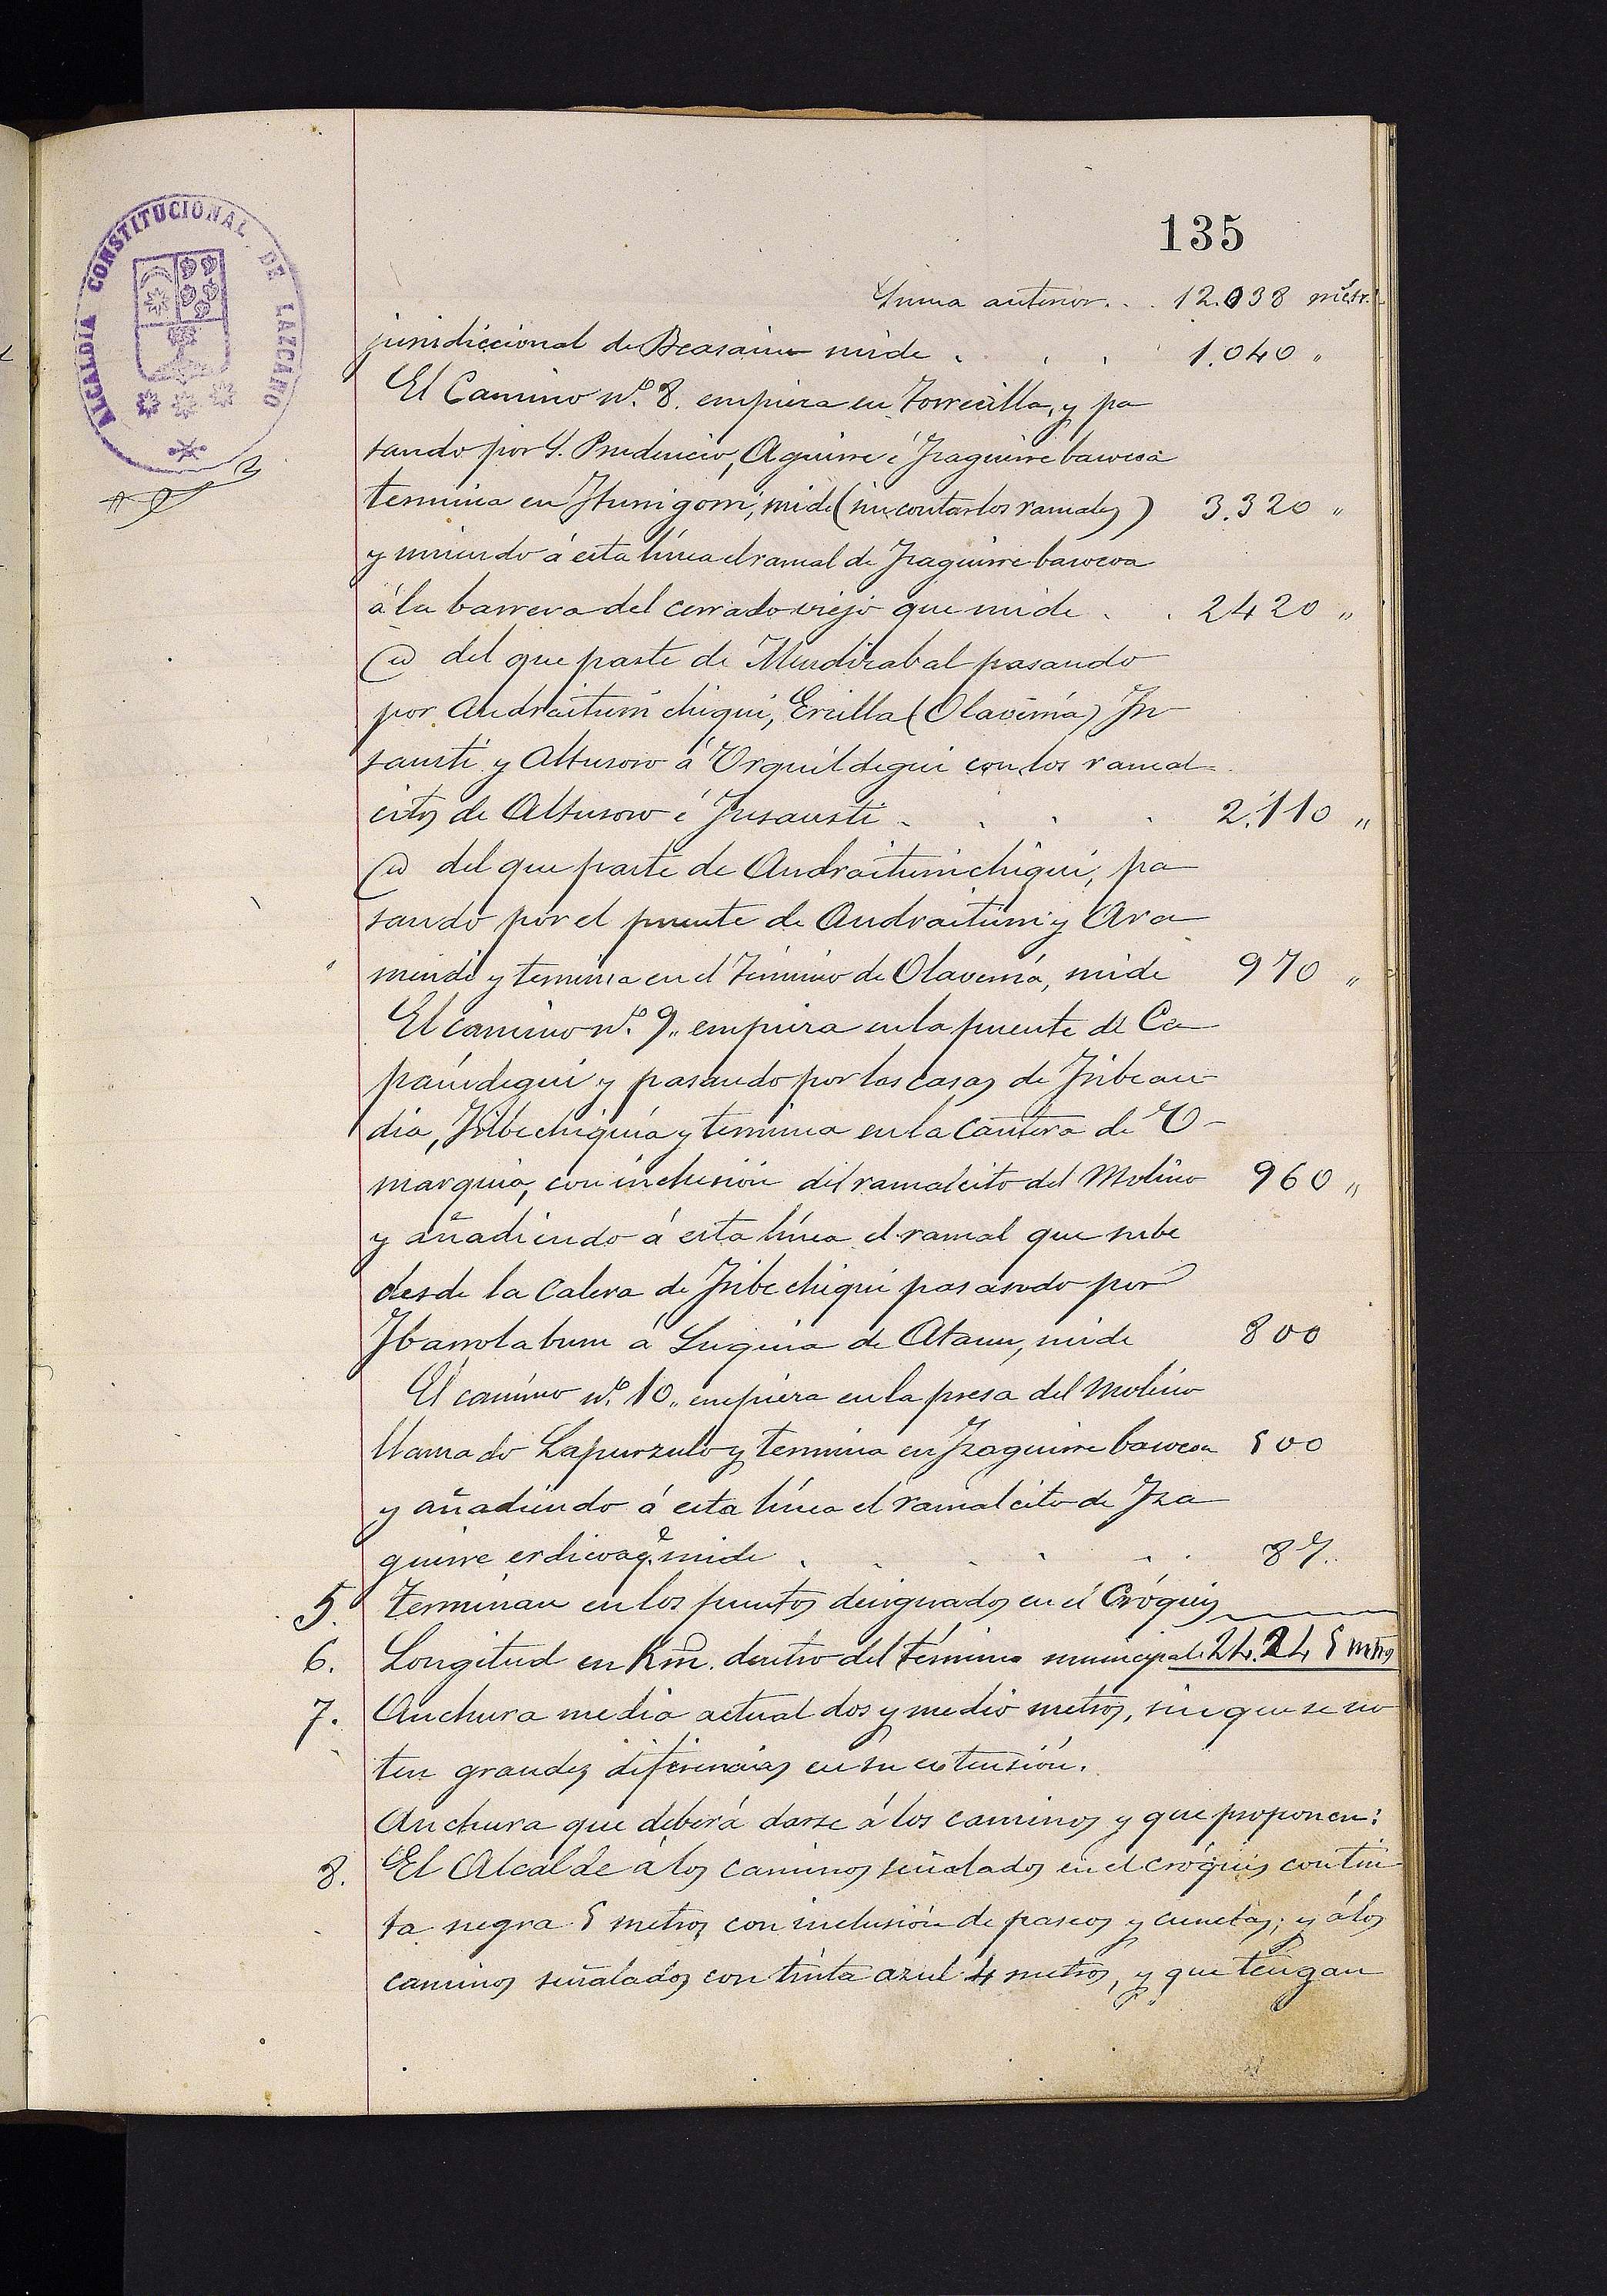 135
ALCALDIA CONSTITUCIONAL DE LAZCANO
Suma anterior. . . 12.038 métr.
jurisdiccional de Beasain mide . . . 1.040 "
El Camino nº. 8. empieza en Torrecilla, y pa
sando por S. Prudencio, Aguirre é Izaguirre barrena
termina en Iturrigorri, mide (sin contar los ramales) 3.320 "
y uniendo á esta línea el ramal de Izaguirre barrena
á la barrera del cerrado viejo que mide . . 2420 "
Id del que parte de Mendizabal pasando
por Andraiturri chiqui, Ercilla (Olaverría) In
sausti y Altusoro á Urquildegui con los ramal
citos de Altusoro é Insausti . . . . 2.110 "
Id del que parte de Andraiturrichiqui, pa
sando por el puente de Andraiturri y Ara
mendi y termina en el término de Olaverría, mide 970 "
El camino nº. 9., empieza en la puente de Ca
paindegui y pasando por las casas de Iribean
dia, Iribechiquia y termina en la cantera de U-
marquia, con inclusión del ramalcito del Molino 960 "
y añadiendo á esta línea el ramal que sube
desde la calera de Iribechiqui pasando por
Ibarrolaburu á Luquia de Ataun, mide 800
El camino nº. 10., empieza en la presa del Molino
llamado Lapurzulo y termina en Izaguirre barrena 500
y añadiendo á esta línea el ramalcito de Iza
guirre erdicoa q.e mide . . . . . 87..
5. Terminan en los puntos designados en el Cróquis
6. Longitud en Km. dentro del término municipal. 24.245 mtrs
7. Anchura media actual dos y medio metros, sin que se no
ten grandes diferencias en su extensión.
Anchura que deberá darse á los caminos y que proponen:
8. El Alcalde á los caminos señalados en el cróquis con tin
ta negra 5 metros con inclusión de paseos y cunetas; y á los
caminos señalados con tinta azul 4 metros, y que tengan